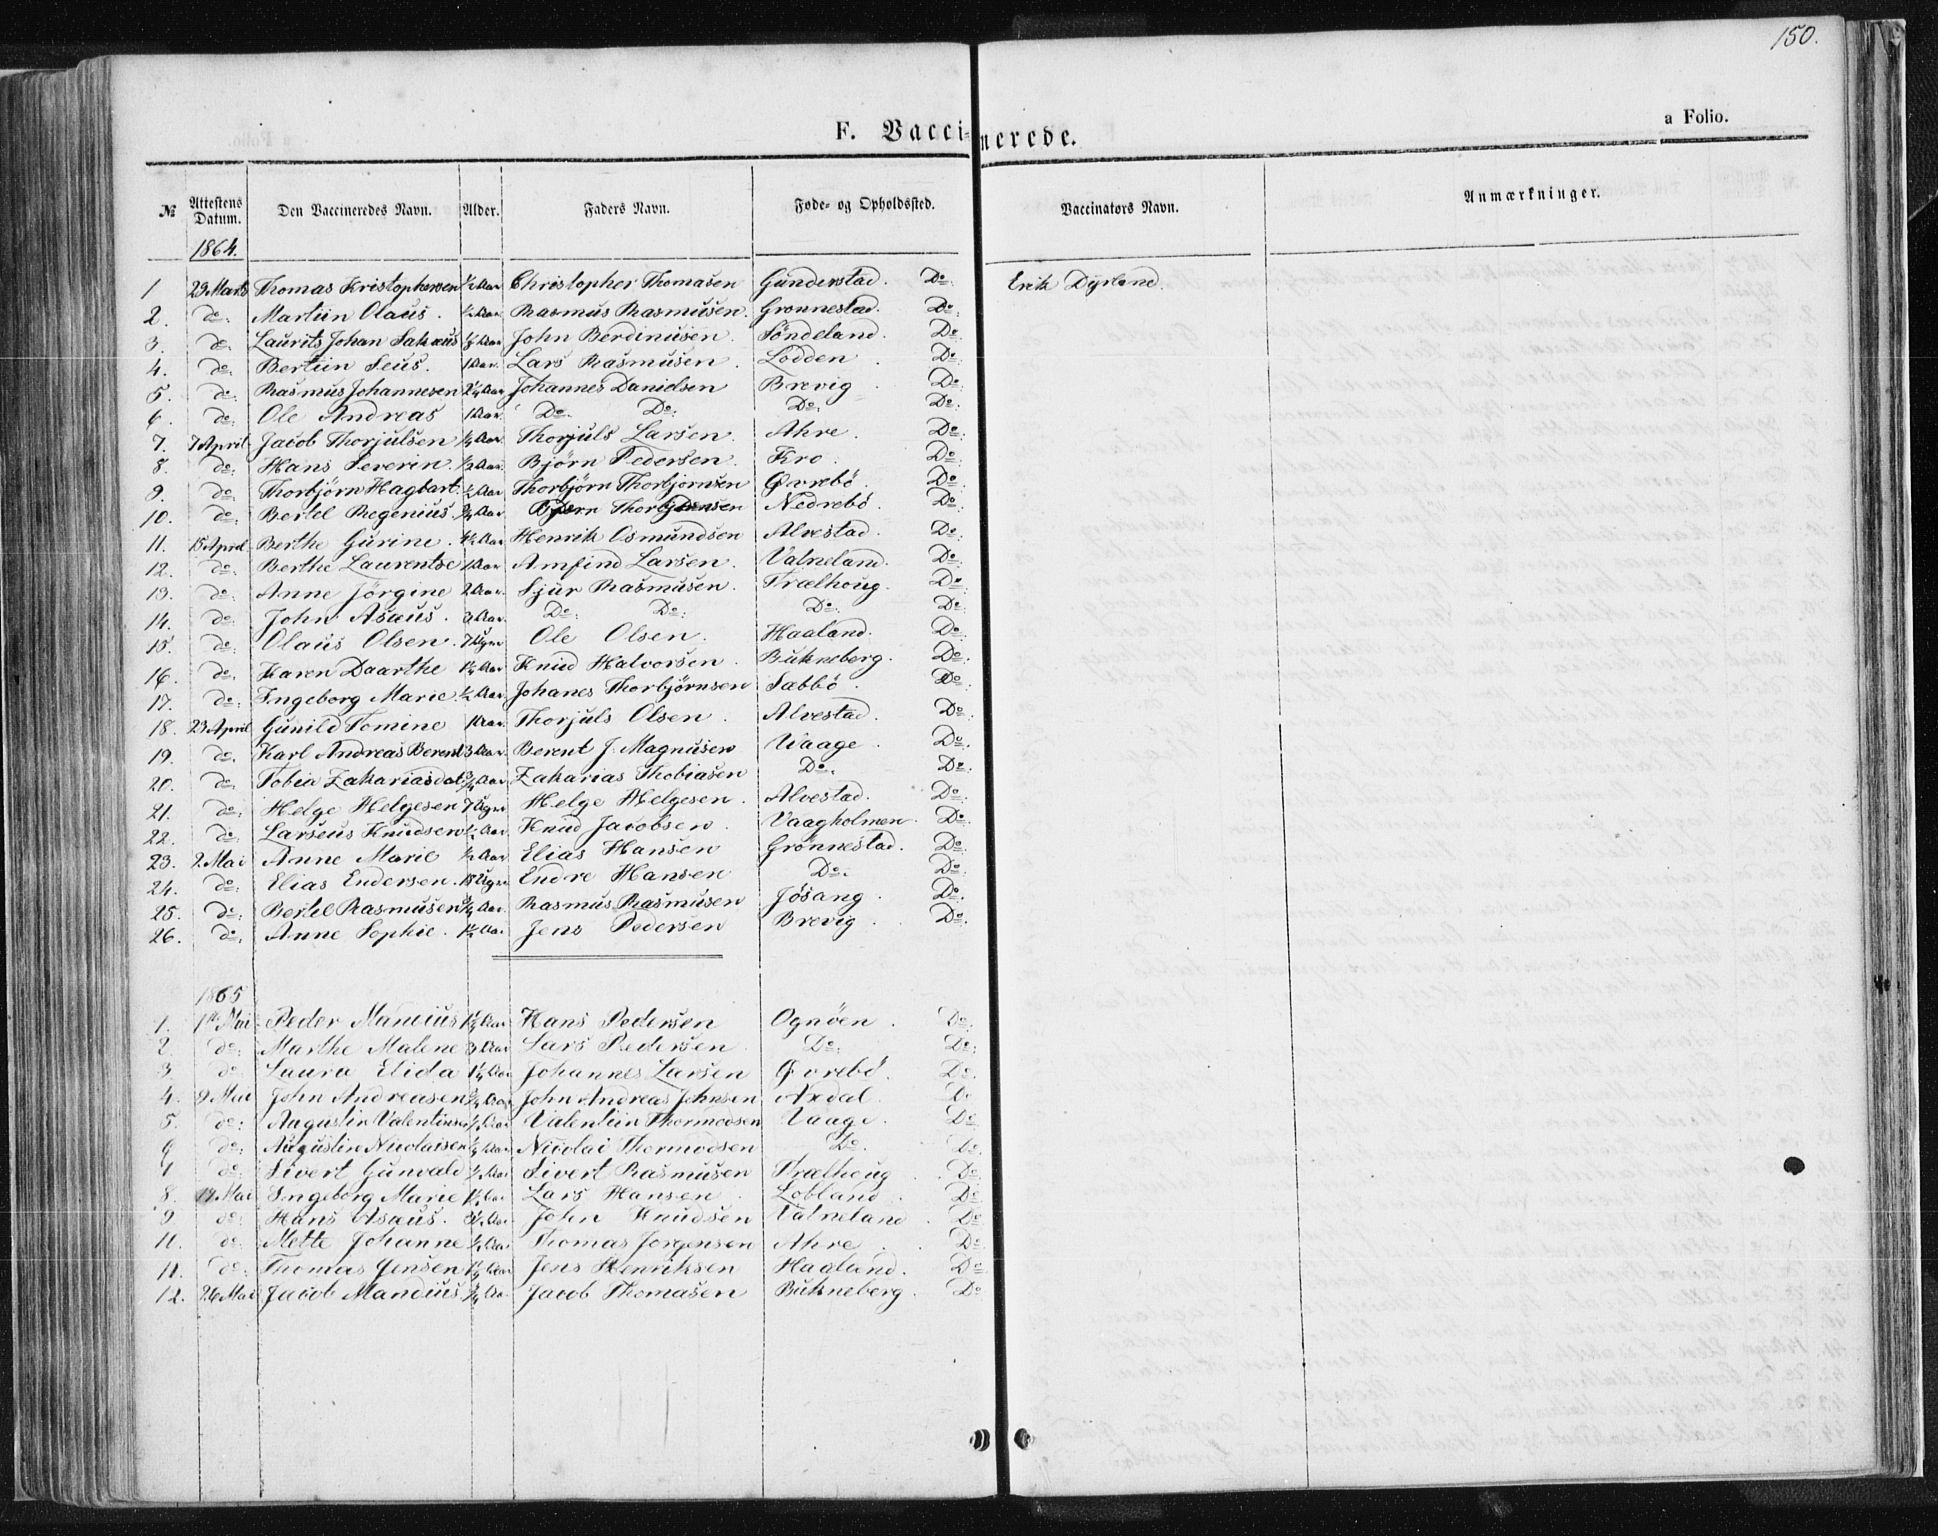 150.
F. Vaccinerede.
a Folio.
№ Attestens Datum. Den Vaccineredes Navn. Alder. Faders Navn. Føde- og Opholdssted. Vaccinators Navn. Anmærkninger.
1864.
1 29 Marts Thomas Kristophersen ½ Aar Christopher Thomasen Gunderstad. Do: Erik Dyrland.
2. do: Martin Olaus. Aar Rasmus Rasmusen. Grønnestad. Do:
3. do. Laurits Johan Aar John Berdinusen Söndeland. Do:
4. do: Bertin Seus. 1 Aar. Lars Rasmusen. Lodden. Do:
5. do: Rasmus Johannesen Aar Johannes Danielsen Brevig. Do:
6. do: Ole Andreas 1 Aar. Do. Do: Do: Do:
7. 7 April Jacob Thorjulsen Aar Thorjuls Larsen. Ahre. Do:
8. do: Hans Severin. ½ Aar Björn Pedersen. Kro. Do:
9. do: Thorbjörn Hagbart. Aar Thorbjörn Thorbjornsen Øvrebö. Do:
10. do: Bertel Regenius. Aar Bjørn Thorbjørnsen Nedrebö. Do:
11. 15 April Berthe Gurine. Aar Henrik Osmundsen Alvestad. Do:
12. do: Berthe Laurentse 1 Aar Amfind Larsen. Valneland. Do:
13. do: Anne Jörgine 2 Aar. Sjur Rasmusen. Trælhoug. Do:
14. do: John Asæus. 3 Aar. Do: Do: Do: Do:
15. do: Olaus Olsen. 7 Uger Ole Olsen. Haaland. Do:
16. do: Karen Daarthe Aar Knud Halvorsen. Bukneberg. Do:
17. do: Ingeborg Marie. Aar. Johanes Thorbjørnsen Sæbbö. Do:
18. 23 April Gunild Tomine 1 Aar. Thorjuls Olsen. Alvestad. Do:
19. do. Karl Andreas Berent 3 Aar. Berent J. Magnusen Vaage. Do:
20. do: Tobia Zakariasdat. ¾ Aar Zakarias Thobiasen Do. Do:
21. do: Helge Helgesen 7 Uger Helge Helgesen. Alvestad. Do:
22. do: Larseus Knudsen Aar Knud Jacobsen. Vaagholmen. Do:
23. 2 Mai Anne Marie ½ Aar Elias Hansen Grönnestad. Do:
24. do: Elias Endersen. 18 Uger Endre Hansen Do. Do:
25. do: Bertel Rasmusen Aar. Rasmus Rasmusen Jösang. Do.
26. do: Anne Sophie. Aar. Jens Pedersen Brevig. Do:
1865
1. 1te Mai Peder Aar Hans Pedersen Ognöen. Do:
2 do: Marthe Malene 3 Aar Lars Pedersen Do: Do:
3 do: Laura Elida Aar Johannes Larsen Øvrebö. Do.
4. 9 Mai John Andreasen Aar John Andreas Johnsen Axdal. Do
5. do: Augustin Valentinsen Aar Valentiin Thormodsen Vaage. Do
6 do: Augustin Nicolaisen Aar Nicolai Thormodsen Do. Do:
7 do: Sivert Gunvald Aar Sivert Rasmusen Trælhoug. Do:
8. 19 Mai Ingeborg Marie Aar Lars Hansen Lobland. Do:
9. do: Hans Asæus. Aar John Knudsen Valneland. Do:
11. do: Mette Johanne Aar Thomas Jorgensen Ahre. Do.
11. do: Thomas Jensen Aar Jens Henriksen Haaland. Do:
12. 26 Mai Jacob Mandius Aar Jacob Thomasen Bukneberg. Do: